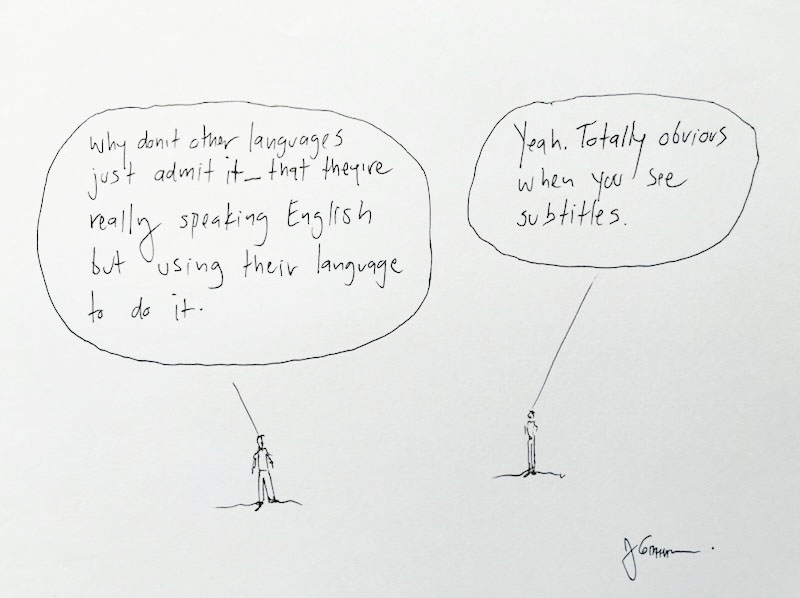 why don't other languages
just admit it – that they're
really speaking English
but using their language
to do it.
Yeah. Totally obvious
when you see
subtitles.